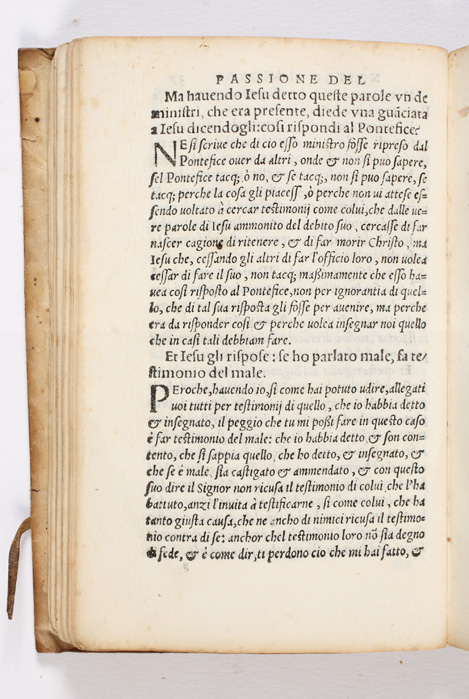 PASSIONE DEL
Ma hauendo Iesu detto queste parole vn de
ministri, che era presente, diede vna guãciata
a Iesu dicendogli: cosi rispondi al Pontefice?
NE si scriue che di cio esso ministro fosse ripreso dal
Pontefice ouer da altri, onde & non si puo sapere,
sel Pontefice tacq;, ò no, & se tacq;, non si puo sapere, se
tacq; perche la cosa gli piacess, ò perche non ui attese es-
sendo uoltato à cercar testimonij come colui, che dalle ue-
re parole di Iesu ammonito del debito suo, cercasse di far
nascer cagione di ritenere, & di far morir Christo, ma
Iesu che, cessando gli altri di far l'officio loro, non uolea
cessar di fare il suo, non tacq; maßimamente che esso ha-
uea cosi risposto al Pontefice, non per ignorantia di quel-
lo, che di tal sua risposta gli fosse per auenire, ma perche
era da risponder cosi & perche uolea insegnar noi quello
che in casi tali debbiam fare.
Et Iesu gli rispose: se ho parlato male, fa te/
stimonio del male.
PEroche, hauendo io, si come hai potuto udire, allegati
uoi tutti per testimonij di quello, che io habbia detto
& insegnato, il peggio che tu mi poßi fare in questo caso
è far testimonio del male: che io habbia detto & son con-
tento, che si sappia quello, che ho detto, & insegnato, &
che se è male, sia castigato & ammendato, & con questo
suo dire il Signor non ricusa il testimonio di colui, che l'ha
battuto, anzi l'inuita à testificarne, si come colui, che ha
tanto giusta causa, che ne ancho di nimici ricusa il testimo-
nio contra di se: anchor chel testimonio loro nõ sia degno
di fede, & è come dir, ti perdono cio che mi hai fatto, &